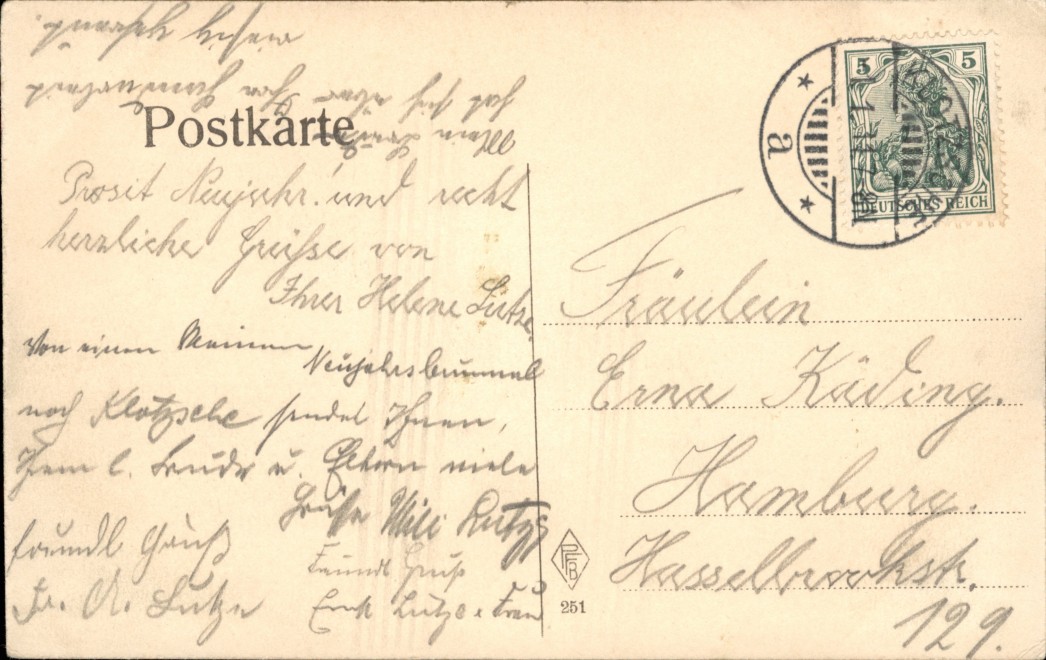 Postkarte
Prosit Neujahr! und recht
herzliche Grüsse von
Ihrer Helene Lutze.
Von einem kleinen
Neujahrsbummel
nach Klotzsche sendet Ihnen,
Ihrem l. Bruder u. Eltern viele
Grüße Mili Lutze
Freundl Gruß
Fr. A. Lutze
Freundl Gruß
Emil Lutze u Frau
5 5
DEUTSCHES REICH
a
Fräulein
Erna Käding.
Hamburg.
Hasselbrookstr.
129.
PFB
251